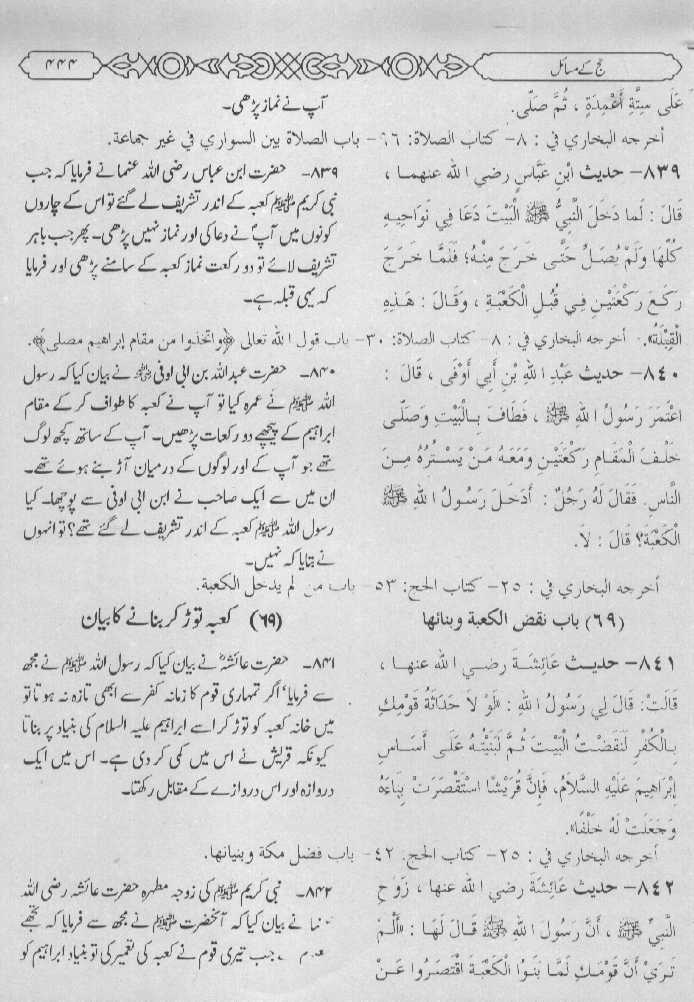 حج کے مسائل
۴۴۴
عَلَى سِتَّةِ أَعْمِدَةٍ ، ثُمَّ صَلَّى.
آپ نے نماز پڑھی۔
أخرجه البخاري في : ٨- كتاب الصلاة: ٩٦- باب الصلاة بين السواري في غير جماعة.
٨٣٩- حديث ابْنِ عَبَّاسٍ رضي الله عنهما ،
قَالَ : لَما دَخَلَ النَّبِيُّ ﷺ الْبَيْتَ دَعَا فِي نَوَاحِيهِ
كُلِّهَا وَلَمْ يُصَلِّ حَتَّى خَرَجَ مِنْهُ؛ فَلَمَّا خَرَجَ
رَكَعَ رَكْعَتَيْنِ فِي قُبُلِ الْكَعْبَةِ ، وَقَالَ : هَذِهِ
الْقِبْلَةُ».
۸۳۹- حضرت ابن عباس رضی اللہ عنہما نے فرمایا کہ جب
نبی کریم ﷺ کعبہ کے اندر تشریف لے گئے تو اس کے چاروں
کونوں میں آپؐ نے دعا کی اور نماز نہیں پڑھی۔ پھر جب باہر
تشریف لائے تو دو رکعت نماز کعبہ کے سامنے پڑھی اور فرمایا
کہ یہی قبلہ ہے۔
أخرجه البخاري في : ٨- كتاب الصلاة: ٣٠- باب قول الله تعالى ﴿واتخذوا من مقام إبراهيم مصلى﴾.
٨٤٠- حديث عَبْدِ اللهِ بْنِ أَبِي أَوْفَى ، قَالَ :
اعْتَمَرَ رَسُولُ اللهِ ﷺ ، فَطَافَ بِالْبَيْتِ وَصَلَّى
خَلْفَ الْمَقَامِ رَكْعَتَيْنِ وَمَعَهُ مَنْ يَسْتُرُهُ مِنَ
النَّاسِ. فَقَالَ لَهُ رَجُلٌ : أَدَخَلَ رَسُولُ اللهِ ﷺ
الْكَعْبَةَ؟ قَالَ : لاَ.
۸۴۰- حضرت عبداللہ بن ابی اوفیؓ نے بیان کیا کہ رسول
اللہ ﷺ نے عمرہ کیا تو آپ نے کعبہ کا طواف کر کے مقام
ابراہیم کے پیچھے دو رکعات پڑھیں۔ آپ کے ساتھ کچھ لوگ
تھے جو آپ کے اور لوگوں کے درمیان آڑ بنے ہوئے تھے۔
ان میں سے ایک صاحب نے ابن ابی اوفی سے پوچھا۔ کیا
رسول اللہ ﷺ کعبہ کے اندر تشریف لے گئے تھے؟ تو انہوں
نے بتایا کہ نہیں۔
أخرجه البخاري في : ٢٥- كتاب الحج: ٥٣- باب من لم يدخل الكعبة.
(٦٩) باب نقض الكعبة وبنائها
(۶۹) کعبہ توڑ کر بنانے کا بیان
٨٤١- حديث عَائِشَةَ رضي الله عنها ،
قَالَتْ: قَالَ لِي رَسُولُ اللهِ : «لَوْ لاَ حَدَاثَةُ قَوْمِكِ
بِالْكُفْرِ لَنَقَضْتُ الْبَيْتَ ثُمَّ لَبَنَيْتُهُ عَلَى أَسَاسِ
إِبْرَاهِيمَ عَلَيْهِ السَّلاَمُ، فَإِنَّ قُرَيْشًا اسْتَقْصَرَتْ بِنَاءَهُ
وَجَعَلَتْ لَهُ خَلْفًا».
۸۴۱- حضرت عائشہؓ نے بیان کیا کہ رسول اللہ ﷺ نے مجھ
سے فرمایا‘ اگر تمہاری قوم کا زمانہ کفر سے ابھی تازہ نہ ہوتا تو
میں خانہ کعبہ کو توڑ کر اسے ابراہیم علیہ السلام کی بنیاد پر بناتا
کیونکہ قریش نے اس میں کمی کر دی ہے۔ اس میں ایک
دروازہ اور اس دروازے کے مقابل رکھتا۔
أخرجه البخاري في : ٢٥- كتاب الحج: ٤٢- باب فضل مكة وبنيانها.
٨٤٢- حديث عَائِشَةَ رضي الله عنها ، زَوْجِ
النَّبِيِّ ﷺ ، أَنَّ رَسُولَ اللهِ ﷺ قَالَ لَهَا : «أَلَمْ
تَرَيْ أَنَّ قَوْمَكِ لَمَّا بَنَوُا الْكَعْبَةَ اقْتَصَرُوا عَنْ
۸۴۲- نبی کریم ﷺ کی زوجہ مطہرہ حضرت عائشہ رضی اللہ
نے بیان کیا کہ آنحضرت ﷺ نے مجھ سے فرمایا کہ تجھے
جب تیری قوم نے کعبہ کی تعمیر کی تو بنیاد ابراہیم کو